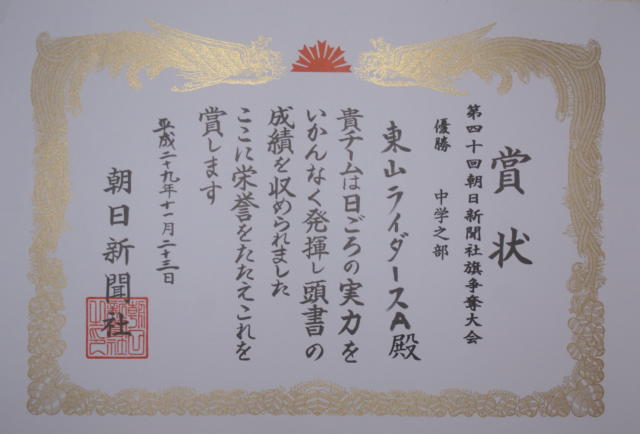 賞状
第四十回朝日新聞社旗争奪大会
優勝 中学之部
東山ライダースA殿
貴チームは日ごろの実力を
いかんなく発揮し頭書の
成績を収められました
ここに栄誉をたたえこれを
賞します
平成二十九年十一月二十三日
朝日新聞社